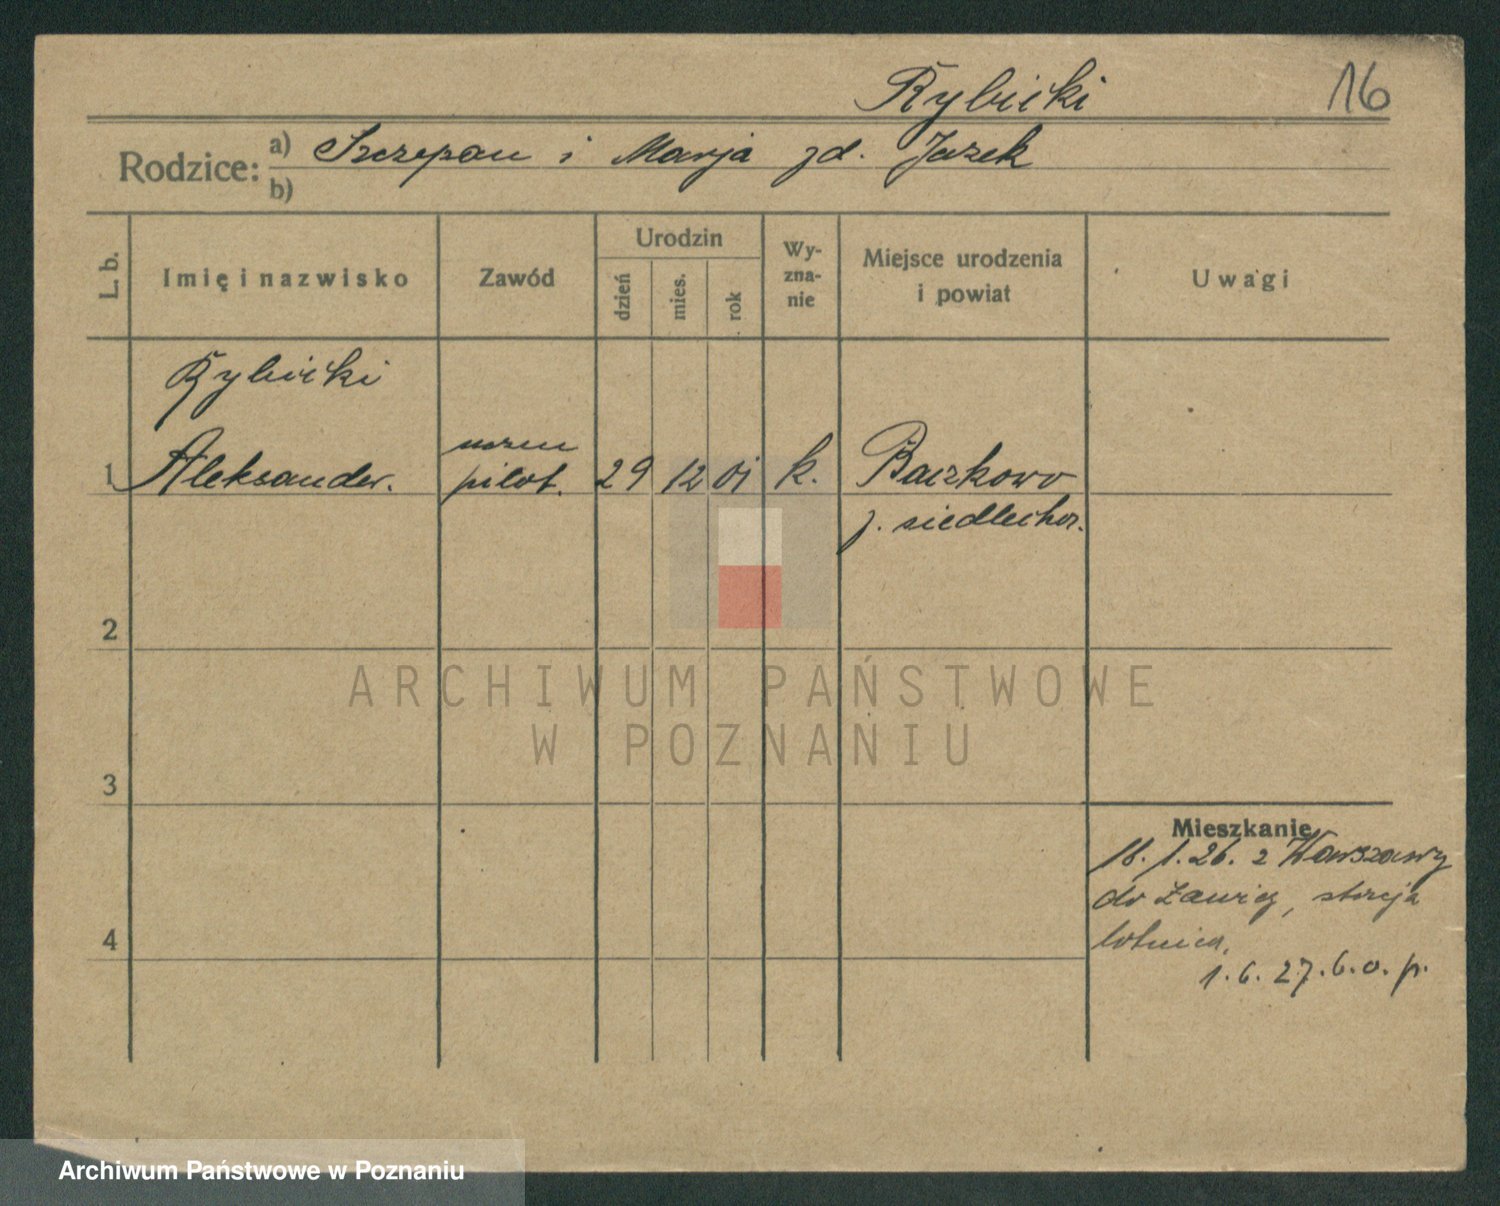 Rybicki
16
Rodzice:
a) Szczepan i Marja zd. Jazek
b)
L. b.
Imię i nazwisko
Zawód
Urodzin
dzień
mies.
rok
Wy-
zna-
nie
Miejsce urodzenia
i powiat
Uwagi
Rybicki
1 Aleksander.
uczeń
pilot.
29 12 01 k. Baczkowo
siedlecka.
2
3
4
ARCHIWUM PAŃSTWOWE
W POZNANIU
Mieszkanie
18. 1. 26. z Warszawy
do Ławicy, stacja
lotnicza.
1. 6. 27. 6. o. p.
Archiwum Państwowe w Poznaniu